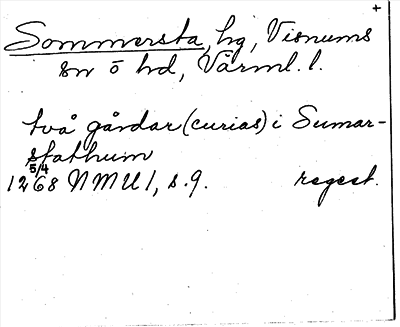 +
Sommersta, hg, Visnums
sn o hd, Värml. l.
två gårdar (curias) i Sumar-
stathum
5/4
1268 NMU 1, s. 9. regest.